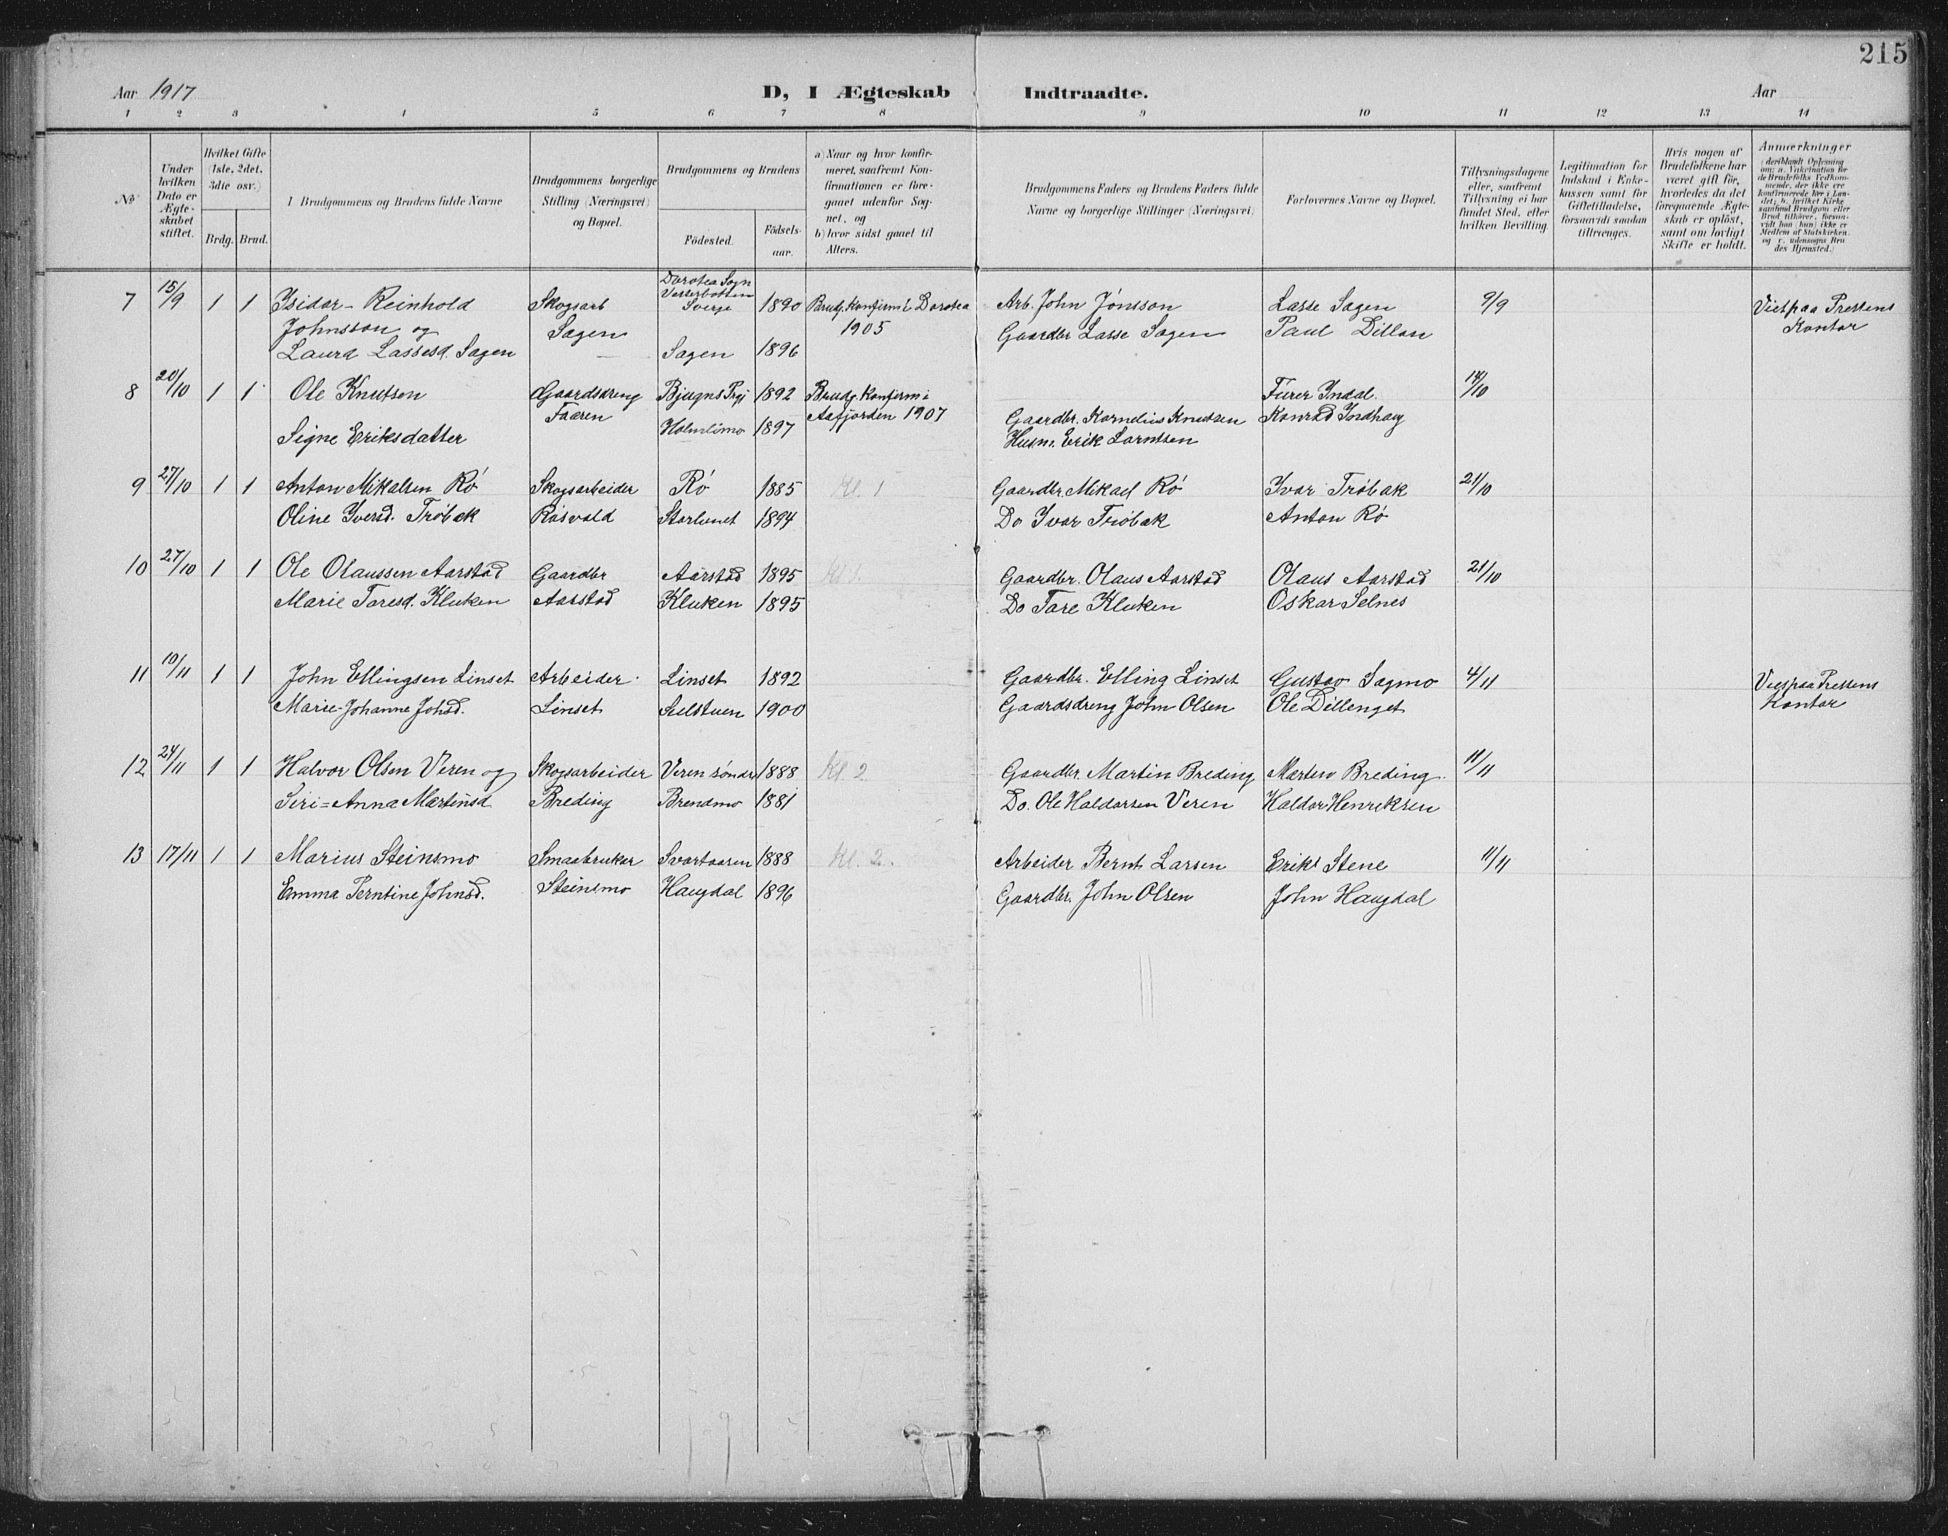 215
Aar 1917 D, I Ægteskab Indtraadte. Aar
1 2 3 4 5 6 7 8 9 10 11 12 13 14
№
Under hvilken Dato er Ægteskabet stiftet.
Hvilket Gifte (1ste, 2det, 3die osv.)
Brdg. Brud.
1 Brudgommens og Brudens fulde Navne
Brudgommens borgerlige Stilling (Næringsvei) og Bopæl.
Brudgommens og Brudens
Födested.
Födselsaar.
a) Naar og hvor konfirmeret, saafremt Konfirmationen er foregaaet udenfor Sognet, og
b) hvor sidst gaaet til Alters.
Brudgommens Faders og Brudens Faders fulde Navne og borgerlige Stillinger (Næringsvei)
Forlovernes Navne og Bopæl.
Tillysningsdagene eller, saafremt Tillysning ei har fundet Sted, efter hvilken Bevilling.
Legitimation for Indskud i Enkekassen samt for Giftetilladelse, forsaavidt saadan tiltrænges.
Hvis nogen af Brudefolkene har været gift för, hvorledes da det foregaaende Ægteskab er oplöst, samt om lovligt Skifte er holdt.
Anmærkninger
7 15/9 1 1 Isidor-Reinhold Skogsarb Dorotea Sogn Vesterbotten Sverje 1890 Brudg. Konfirm i Dorotea Arb. John Jónsson Lasse Sagen 9/9 Viet paa Prestens
Johnsson og Sagen 1905 Gaardbr Lasse Sagen Paul Dillan Kontor
Laura Lassesd. Sagen Sagen 1896
8 20/10 1 1 Ole Knutsen Gaardsdreng Bjugns Prgj 1892 Brudg. Konfirm i 14/10
Færen Aafjorden 1907 Gaardbr. Kornelius Knudsen
Signe Eriksdatter Holmlimo 1897 Husm. Erik Larntsen
9 27/10 1 1 Anton Mikalsen Rö Skogsarbeider Rö 1885 Kl. 1 Gaardbr. Mikael Rö Ivar Tröbak 21/10
Oline Iversd. Tröbak Rösvald Storlunet 1894 Do Ivar Tröbak Anton Rö
10 27/10 1 1 Ole Olaussen Aarstad Gaardbr Aarstad 1895 Gaardbr. Olaus Aarstad Olaus Aarstad 21/10
Marie Taresd. Kluken Aarstad Kluken 1895 Do Tare Kluken Oskar Selnes
11 10/11 1 1 John Ellingsen Linset Arbeider Linset 1892 Gaardbr. Elling Linset Gustav Sagmo 4/11 Viet paa Prestens
Marie-Johanne Johsd. Linset 1900 Gaardsdreng John Olsen Ole Dillenget Kontor
12 24/11 1 1 Halvor Olsen Veren og Skogsarbeider Veren söndr 1888 Kl 2. Gaardbr. Martin Breding Martin Breding 11/11
Siri=Anna Martinsd Breding Brendmo 1881 Do. Ole Haldorsen Veren Haldor Henriksen
13 17/11 1 1 Marius Steinsmo Smaabruker Svartaaren 1888 Kl. 2. Arbeider Bernt Larsen Erikt Stene 11/11
Emma Perntine Johnsd. Steinsmo Haugdal 1896 Gaardbr. John Olsen John Haugdal